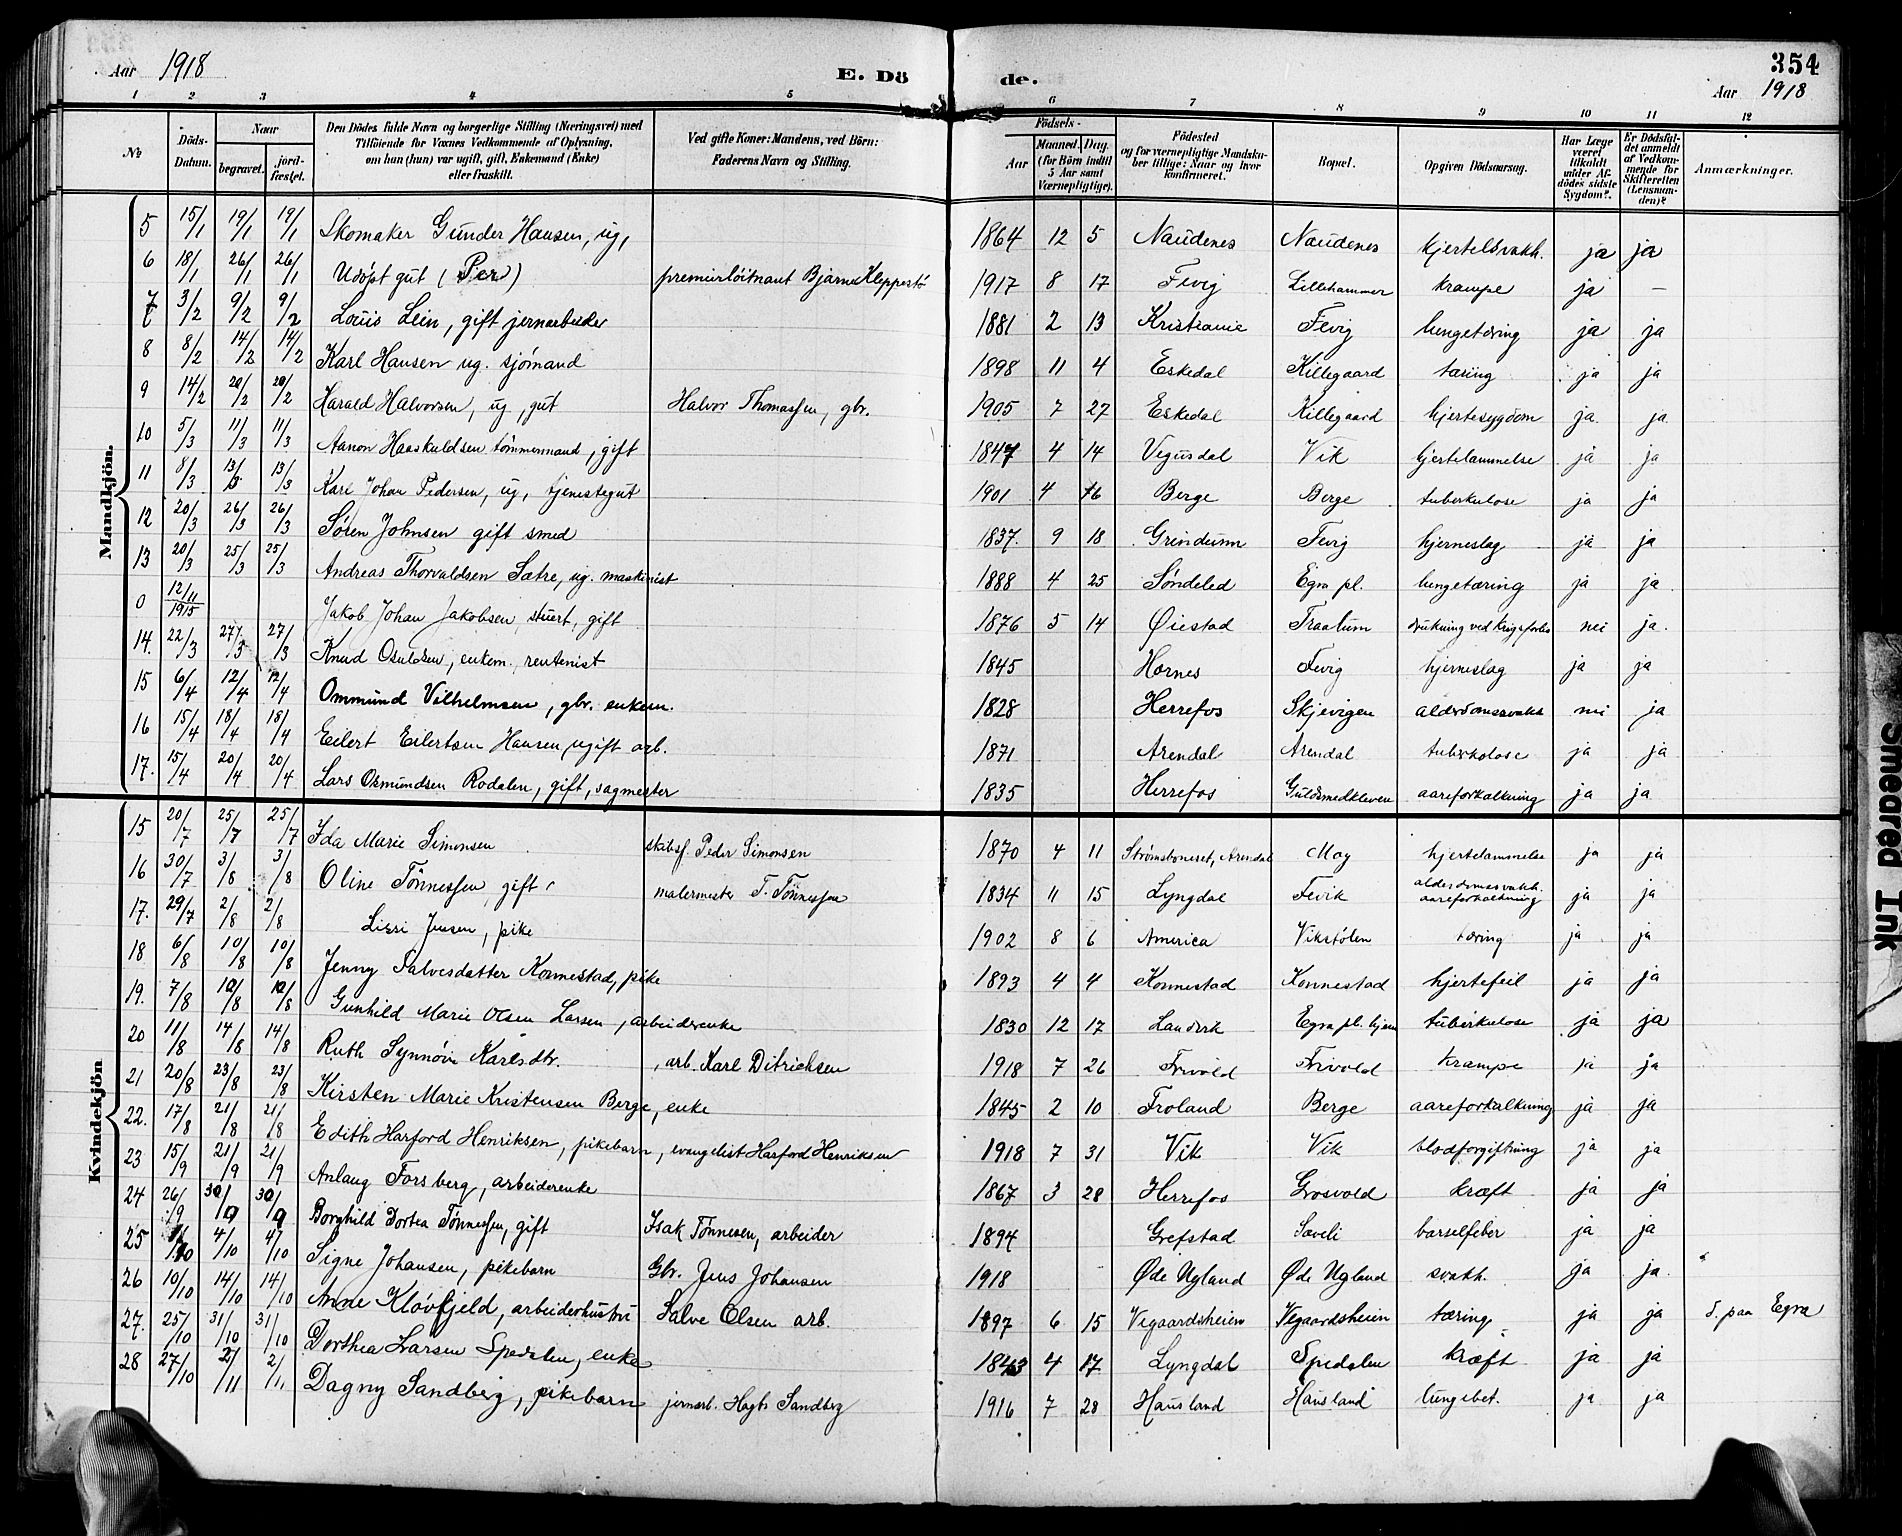 Aar 1918 E. Dö de. 354
Aar 1918
1 2 3 4 5 6 7 8 9 10 11 12
№ Döds-Datum. Naar begravet. jord-fæstet. Den Dödes fulde Navn og borgerlige Stilling (Næringsvei) med Tilföiende for Voxnes Vedkommende af Oplysning, om hun (han) var ugift, gift, Enkemand (Enke) eller fraskilt. Ved gifte Koner: Mandens, ved Börn: Faderens Navn og Stilling. Födsels- Aar Maaned. Dag. (for Börn indtil 5 Aar samt Værnepligtige). Födested og for værnepligtige Mandskaber tillige: Naar og hvor konfirmeret. Bopæl. Opgiven Dödsaarsag. Har Læge været tilkaldt under Afdödes sidste Sygdom? Er Dödsfaldet anmeldt af Vedkommende for Skifteretten (Lensmanden)? Anmærkninger.
Mandkjön.
5 15/1 19/1 19/1 Skomaker Gunder Hansen, ug, 1864 12 5 Naudenes Naudenes hjertesvakh. ja ja
6 18/1 26/1 26/1 Udøpt gut (Per) premierløitnant Bjarne Kleppestø 1917 8 17 Fevig Lillehammer krampe ja —
7 3/2 9/2 9/2 Louis Lein, gift jernarbeider 1881 2 13 Kristiania Fevig lungetæring ja ja
8 8/2 14/2 14/2 Karl Hansen ug. sjómand 1898 11 4 Eskedal Killegaard tæring ja ja
9 14/2 20/2 20/2 Harald Halvorsen, ug, gut Halvor Thomassen, gbr. 1905 7 27 Eskedal Killegaard hjertesygdom ja. ja
10 5/3 11/3 11/3 Aanon Haaskuldsen tömmermand, gift 1847 4 14 Vegusdal Vik hjertelammelse ja ja
11 8/3 13/3 13/3 Karl Johan Pedersen, ug, tjenestegut 1901 4 16 Berge Berge tuberkulose ja ja
12 20/3 26/3 26/3 Søren Johnsen gift smed 1837. 9 18 Grindum Fevig hjerneslag ja ja
13 20/3 25/3 25/3 Andreas Thorvaldsen Sætre, ug. maskinist 1888 4 25 Søndeled Egra pl. lungetæring ja ja
0 12/11 1915 Jakob Johan Jakobsen, stuert, gift 1876 5 14 Øiestad Traalum drukning ved krigsforlis nei ja.
14. 22/3 27/3 27/3 Knud Osuldsen, enkem., rentenist 1845 Hornes Fevig hjerneslag ja ja
15 6/4 12/4 12/4 Ommund Vilhelmsen, gbr. enkem. 1828 Herrefos Skjevigen alderdomssvakh nei ja
16 15/4 18/4 18/4 Eilert Eilertsen Hansen, ugift arb. 1871 Arendal Arendal tuberkolose ja ja
17. 15/4 20/4 20/4 Lars Osmundsen Rodalen, gift, sagmester 1835 Herrefos Guldsmedkleven aareforkalkning ja ja
Kvindekjön
15 20/7 25/7 25/7 Ida Marie Simonsen skibsf. Peder Simonsen 1870 4 11 Strømsboneset, Arendal Moy hjertelammelse ja ja
16 30/7 3/8 3/8 Oline Tönnessen, gift malermester T. Tönnessen 1834 11 15 Lyngdal Fevik alderdomssvakh. aareforkalkning ja ja
17. 29/7 2/8 2/8 Lissi Jensen, pike 1902 8 6 America Vikstølen tæring ja ja
18 6/8 10/8 10/8 Jenny Salvesdatter Konnestad, pike 1893 4 4 Konnestad Konnestad hjertefeil ja ja
19. 7/8 10/8 10/8 Gunhild Marie Olsen Larsen, arbeiderenke 1830 12 17 Landvik Egra pl. hjem tuberkulose ja ja
20 11/8 14/8 14/8 Ruth Synnöve Karlsdtr. , arb. Karl Ditrichsen 1918 7 26 Frivold Frivold krampe ja ja
21 20/8 23/8 23/8 Kirsten Marie Kristensen Berge, enke 1845 2 10 Froland Berge aareforkalkning ja ja
22. 17/8 21/8 21/8 Edith Harford Henriksen, pikebarn, evangelist Harford Henriksen 1918 7 31 Vik Vik blodforgiftning ja ja
23 15/9 21/9 21/9 Anlaug Forsberg, arbeiderenke 1867 3 28 Herrefos Grosvold kræft ja ja
24 26/9 30/9 30/9 Borghild Dortea Tönnessen, gift Isak Tönnesen, arbeider 1894 Grefstad Saveli barselfeber ja ja
25 4/10 4/10 Signe Johansen, pikebarn Gbr. Jens Johansen 1918 Øde Ugland Øde Ugland svakh. ja ja.
26 10/10 14/10 14/10 Anne Klóvfjeld, arbeiderhustru Salve Olsen arb. 1897 6 15 Vegaardsheien Vegaardsheien tæring ja ja d. paa Egra
27. 25/10 31/10 31/10 Dorthea Larsen Spedalen, enke 1843 4 17 Lyngdal Spedalen kræft ja ja
28 27/10 2/11 2/11 Dagny Sandberg, pikebarn jernarb. Hagb. Sandberg 1916 7 28 Hausland Hausland lungebet. ja ja
Smeared Ink